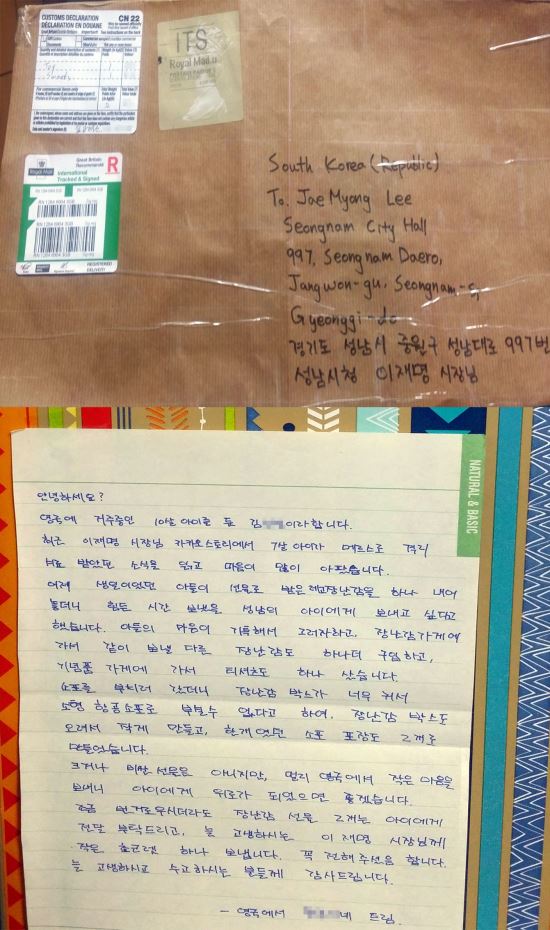 CUSTOMS DECLARATION
DÉCLARATION EN DOUANE
CN 22
Great Britain
Important!
Toy
Sweets
ITS
Royal Mail.u
Royal Mail
Great Britain
Recommandé
R
International
Tracked & Signed
RN 1284 6904 3GB
RN 1284 6904 3GB
RN 1284 6904 3GB
REGISTERED
DELIVERY
South Korea (Republic)
To. Jae Myong Lee
Seongnam City Hall
997, Seongnam Daero,
Jangwon-gu, Seongnam-s,
Gyeonggi-do
경기도 성남시 중원구 성남대로 997번
성남시청 이재명 시장님
NATURAL & BASIC
안녕하세요?
영국에 거주중인 10살 아이를 둔 김 이라합니다.
최근 이재명 시장님 카카오스토리에서 7살 아이가 메르스로 격리
치료 받았던 소식을 읽고 마음이 많이 아팠습니다.
어제 생일이었던 아들이 선물로 받은 레고장난감을 하나 내어
놓더니 힘든 시간 보냈을 성남의 아이에게 보내고 싶다고
했습니다. 아들의 마음이 기특해서 그러자하고, 장난감가게에
가서 같이 보낼 다른 장난감도 하나더 구입하고,
기념품 가게에 가서 티셔츠도 하나 샀습니다.
소포를 부치러 갔더니 장난감 박스가 너무 커서
소형 항공소포로 부칠수 없다고 하여, 장난감 박스도
오려서 작게 만들고, 한개였던 소포 포장도 2개로
만들었습니다.
크거나 비싼 선물은 아니지만, 멀리 영국에서 작은 마음을
보내니 아이에게 위로가 되었으면 좋겠습니다.
조금 번거로우시더라도 장난감 선물 2개는 아이에게
전달 부탁드리고, 늘 고생하시는 이재명 시장님께
작은 초코렛 하나 보냅니다. 꼭 전해주셨음 합니다.
늘 고생하시고 수고하시는 분들께 감사드립니다.
- 영국에서 네 드림.